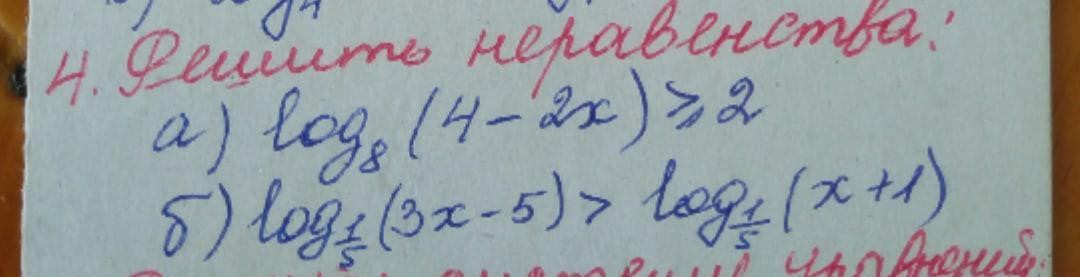 4. Решить неравенства:
а) log₈(4-2x)⩾2
б) log_{1/5}(3x-5)> log_{1/5}(x+1)
уравнений